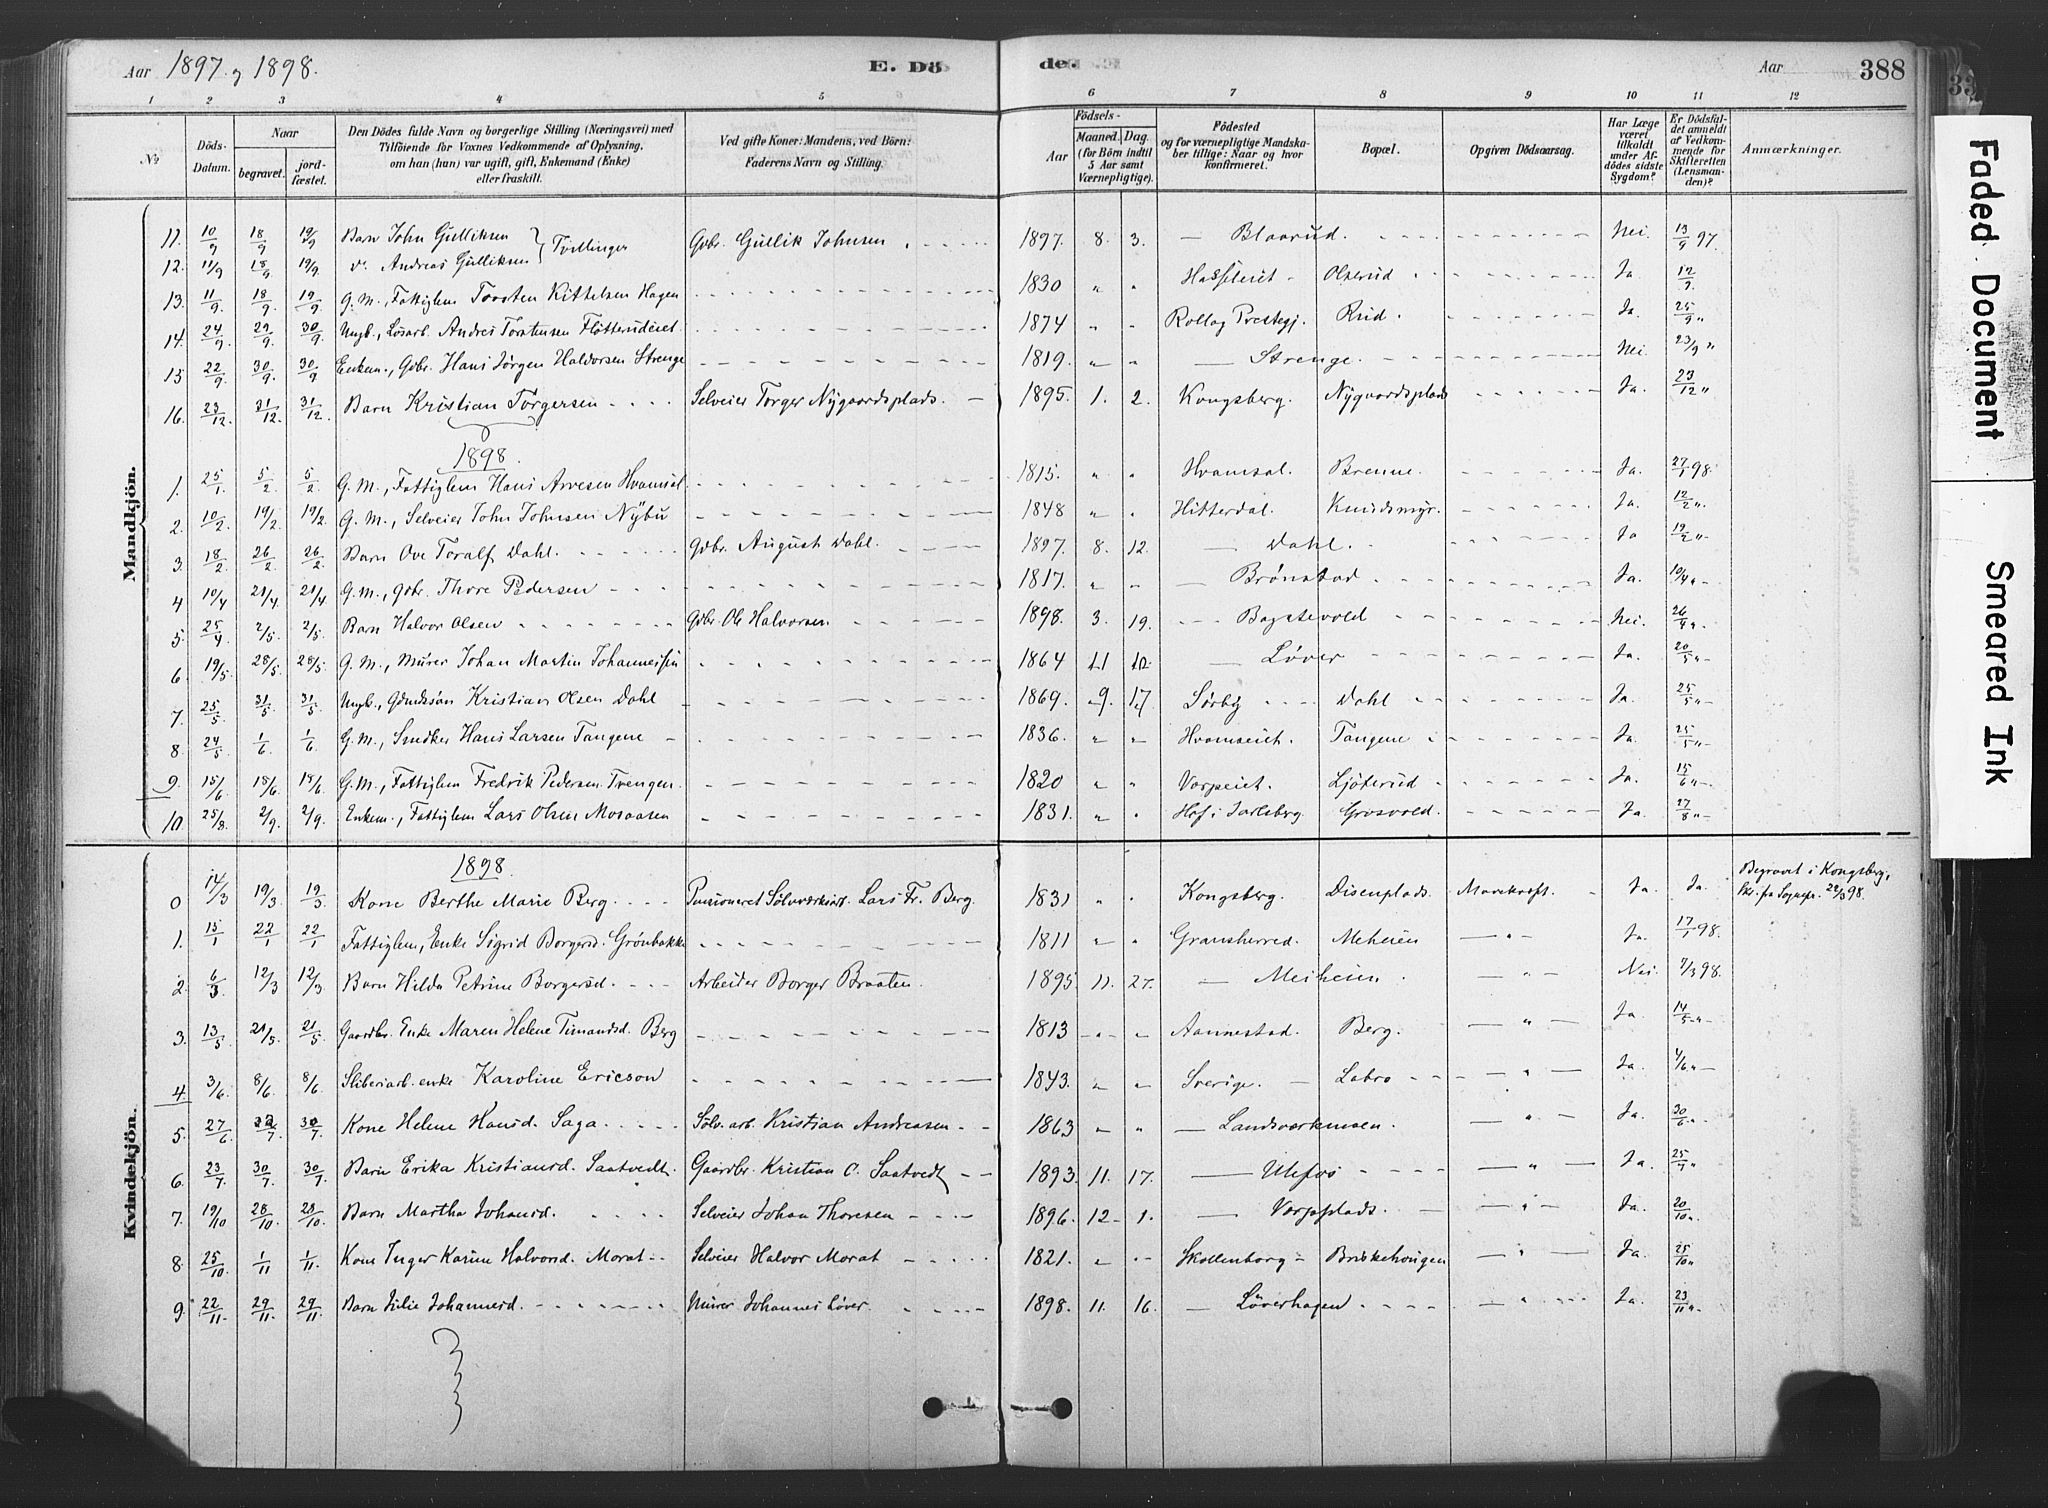 Aar 1897 og 1898.
E. Dö
de.
Aar
388
1 2 3 4 5 6 7 8 9 10 11 12
No
Döds-Datum.
Naar
begravet.
jordfæstet.
Den Dödes fulde Navn og borgerlige Stilling (Næringsvei) med
Tilföiende for Voxnes Vedkommende af Oplysning,
om han (hun) var ugift, gift, Enkemand (Enke)
eller fraskilt.
Ved gifte Koner: Mandens, ved Börn:
Faderens Navn og Stilling.
Födsels-
Aar
Maaned. Dag.
(for Börn indtil
5 Aar samt
Værnepligtige).
Födested
og for værnepligtige Mandska-
ber tillige: Naar og hvor
konfirmeret.
Bopæl.
Opgiven Dödsaarsag.
Har Læge
været
tilkaldt
under Af-
dödes sidste
Sygdom?
Er Dödsfal-
det anmeldt
af Vedkom-
mende for
Skifteretten
(Lensman-
den)?
Anmærkninger.
Mandkjön.
11. 10/9 18/9 19/9 Barn John Gulliksen } Tvillinger Gbr. Gullik Johnsen 1897. 8. 3. — Blaarud. Nei. 13/9 97.
12. 11/9 18/9 19/9. do Andreas Gulliksen
13. 11/9 18/9 19/9 G. M., Fattiglem Torsten Kittelsen Hagen 1830 " " Olserud Ja 12/9.
14. 24/9 29/9 30/9 Ungk., Løsarb. Andres Torstensen Fløtterudeiet 1874 " " Rollag Prestegj. Rud. Ja. 25/9 "
15 22/9. 30/9. 30/9 Enkem., Gbr. Hans Jørgen Haldorsen Strenge 1819. " " — Strenge. Nei. 23/9 "
16. 23/12. 31/12 31/12 Barn Kristian Torgersen Selveier Torger Nygaardsplads. 1895. 1. 2. Kongsberg. Nygaardsplads Ja. 23/12 "
1898.
1. 25/1 5/2 5/2 G. M., Fattiglem Hans Arvesen Hvamsal 1815. " " Hvamsal. Brenne. Ja. 27/1 98.
2. 10/2 19/2. 19/2 G. M., Selveier John Johnsen Nybu 1848 " " Hitterdal. Knudsmyr. Ja. 12/2 "
3. 18/2 26/2 26/2 Barn Ove Toralf Dahl. Gbr. August Dahl. 1897. 8. 12. — Dahl. Ja 19/2 "
4 10/4 21/4. 21/4 G. M., Gbr. Thore Pedersen 1817. " " — Brønstad Ja. 10/4 "
5. 25/4 2/5. 2/5. Barn Halvor Olsen Gbr. Ole Halvorsen 1898. 3. 19. Bagstevold Nei. 26/4 "
6 19/5. 28/5 28/5 G. M., Murer Johan Martin Johannessen 1864 11 10. — Løver Ja. 20/5 "
7. 25/5 31/5 31/5 Ungk., Gmdssøn Kristian Olsen Dahl 1869. 9. 17 Sørby Dahl Ja. 25/5 "
8 24/5 1/6 1/6 G. M., Snedker Hans Larsen Tangene 1836. " " Hvamseiet. Tangene Ja. 25/5 "
9. 15/6 18/6. 18/6 G. M., Fattiglem Fredrik Pedersen Trengen. 1820 " " Vorpeiet. Ljøterud Ja. 15/6 "
10. 25/8 2/9. 2/9. Enkem., Fattiglem Lars Olsen Mosaasen 1831. " " Hof i Jarlsberg. Grosvold. Ja. 27/8 "
Kvindekjön.
1898.
0 14/3 19/3. 19/3 Kone Berthe Marie Berg. Pensioneret Sølvværksarb. Lars Fr. Berg. 1831 " " Kongsberg. Disenplads. Marekraft. Ja. Ja. Begravet i Kongsberg,
Skr. fra Sognepr. 22/3 98.
1. 15/1 22/1 22/1 Fattiglem, Enke Sigrid Borgersd. Grønbakke 1811 " " Gransherred. Meheien — " — Ja. 17/1 98.
2. 6/3 12/3 12/3 Barn Hilda Petrine Borgersd. Arbeider Borger Braaten. 1895. 11. 27. — Meiheien — " — Nei. 7/3 98.
3. 13/5 21/5. 21/5 Gaardbr. Enke Maren Helene Timandsd. Berg 1813 " " Aannestad. Berg. — " — Ja. 14/5 "
4. 3/6. 8/6 8/6 Sliberiarb. enke Karoline Ericson 1843. " " Sverige. Labro — " — Ja. 4/6 "
5. 27/6 30/7 Kone Helene Hansd. Saga Sølv. arb. Kristian Andreasen 1863 " " — Landsværkmoen. — " — Ja. 30/6 "
6 23/7 30/7 30/7 Barn Erika Kristiansd. Saatvedt. Gaardbr. Kristian O. Saatvedt 1893. 11. 17. — Ulefos — " — Ja. 25/7 "
7. 19/10 28/10 28/10. Barn Martha Johansd. Selveier Johan Thoresen 1896. 12 1. — Vorpplads. — " — Ja. 20/10 "
8. 25/10 1/11 1/11. Kone Inger Karine Halvorsd. Morat Selveier Halvor Morat 1821. " " Skollenborg Briskehougen — " — Ja. 25/10 "
9. 22/11 29/11 29/11 Barn Julie Johannesd. Murer Johannes Løver. 1898. 11. 16. — Løverhagen — " — Ja. 23/11 "
Faded Document
Smeared Ink